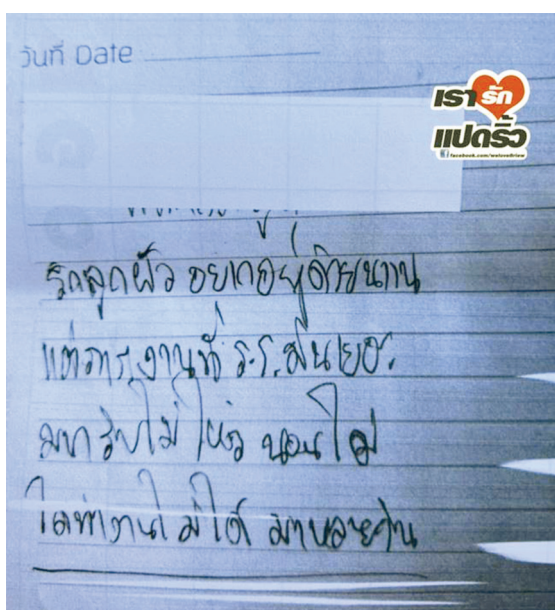 วันที่ Date
เรารัก
แปดริ้ว
facebook.com/weloved8riew
รักลูกผัว อยากอยู่ด้วยนาน
แต่ภาระงานที่ ร.ร. มันเยอะ
มาก รับไม่ไหว นอนไม่
ได้ทำงานไม่ได้ มาหลายวัน